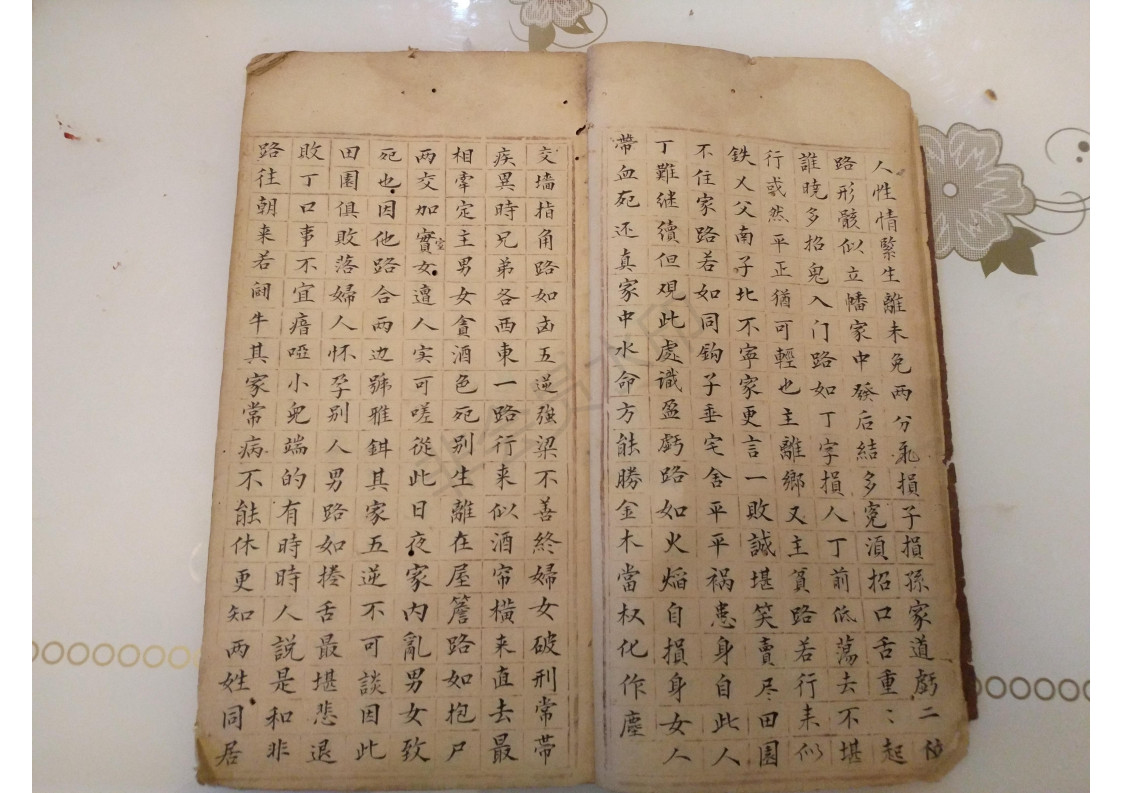 人性情緊生離未免兩分乖損子損孫家道虧二位
路形骸似立幡家中發后結多冤湏招口舌重〻起
誰曉多招鬼入门路如丁字損人丁前低蕩去不堪
行或然平正猶可輕也主離鄉又主貧路若行来似
鉄乂父南子北不寜家更言一敗誠堪笑賣尽田園
不住家路若如同鈎子垂宅舍平平禍患身自此人
丁難继續但观此處識盈虧路如火焰自損身女人
帶血死还真家中水命方能勝金木當权化作塵
交墻指角路如卤五逆強梁不善終婦女破刑常带
疾異時兄弟各西東一路行来似酒帘橫来直去最
相牵定主男女貪酒色死别生離在屋簷路如抱尸
两交加實室女遭人实可嗟從此日夜家内亂男女致
死也因他路合两边號雅鉺其家五逆不可談因此
田園俱敗落婦人怀孕别人男路如捲舌最堪悲退
敗丁口事不宜瘖啞小兒端的有時時人說是和非
路往朝来若闾牛其家常病不能休更知两姓同居